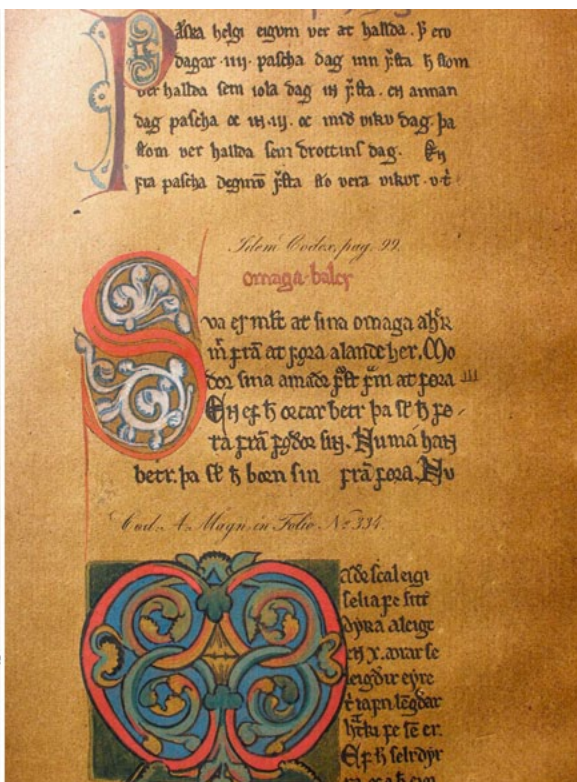 Páſka helgi eigvm ver at hallda. þ ero
dagar .iiij. paſcha dag inn fẏſta ħ ſkom
ver hallda ſem iola dag iɴ fẏſta. en annan
dag paſcha oc iɴ .iij. oc mið vikv dag. þa
ſkom ver hallda ſem drottinſ dag. Eɴ
fra paſcha deginō fẏſta ſko vera vikvr .v. t̄
Idem Codex, pag. 99.
omaga-balcr
Sva er mꝉt at ſina omaga a hv̄ʀ
m̄ frā at fǫra a lande her. Mo
ðor ſina a maðr fẏſt frā at fǫra
Eɴ ef ħ orcar betr þa ſꝉ ħ fǫ-
ra frā fǫðor ſiɴ. Nu má haɴ
betr. þa ſꝉ ħ born ſin frā fǫra. Nu
Cod. A. Magn. in Folio No 334.
Maðr ſcal eigi
ſelia fe ſitt
dẏʀa a leigo
en x. avrar ſe
leigðir eẏre